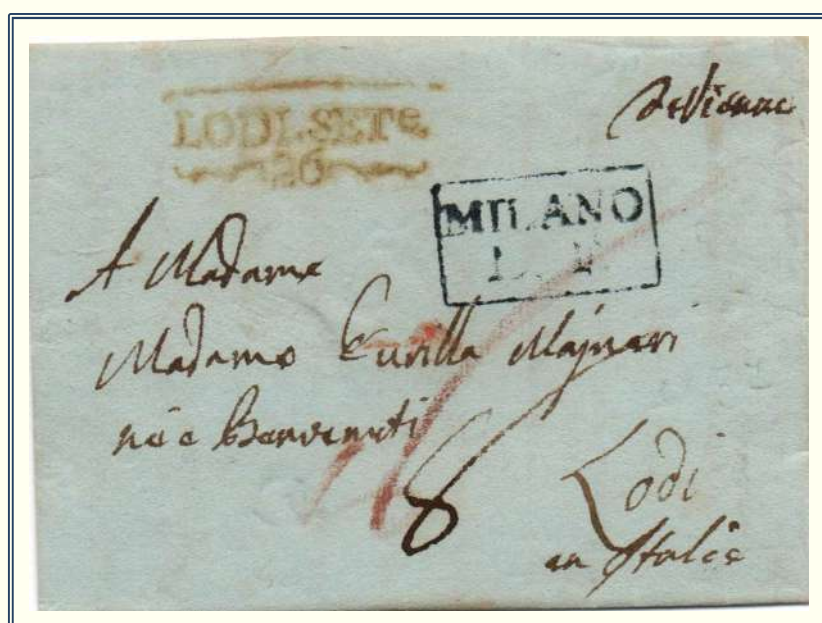 LODI.SETe.
26
de Vienne
MILANO
L. T.
A Madame
Madame Eurilla Majneri
née Benvenuti
8
Lodi
en Italie